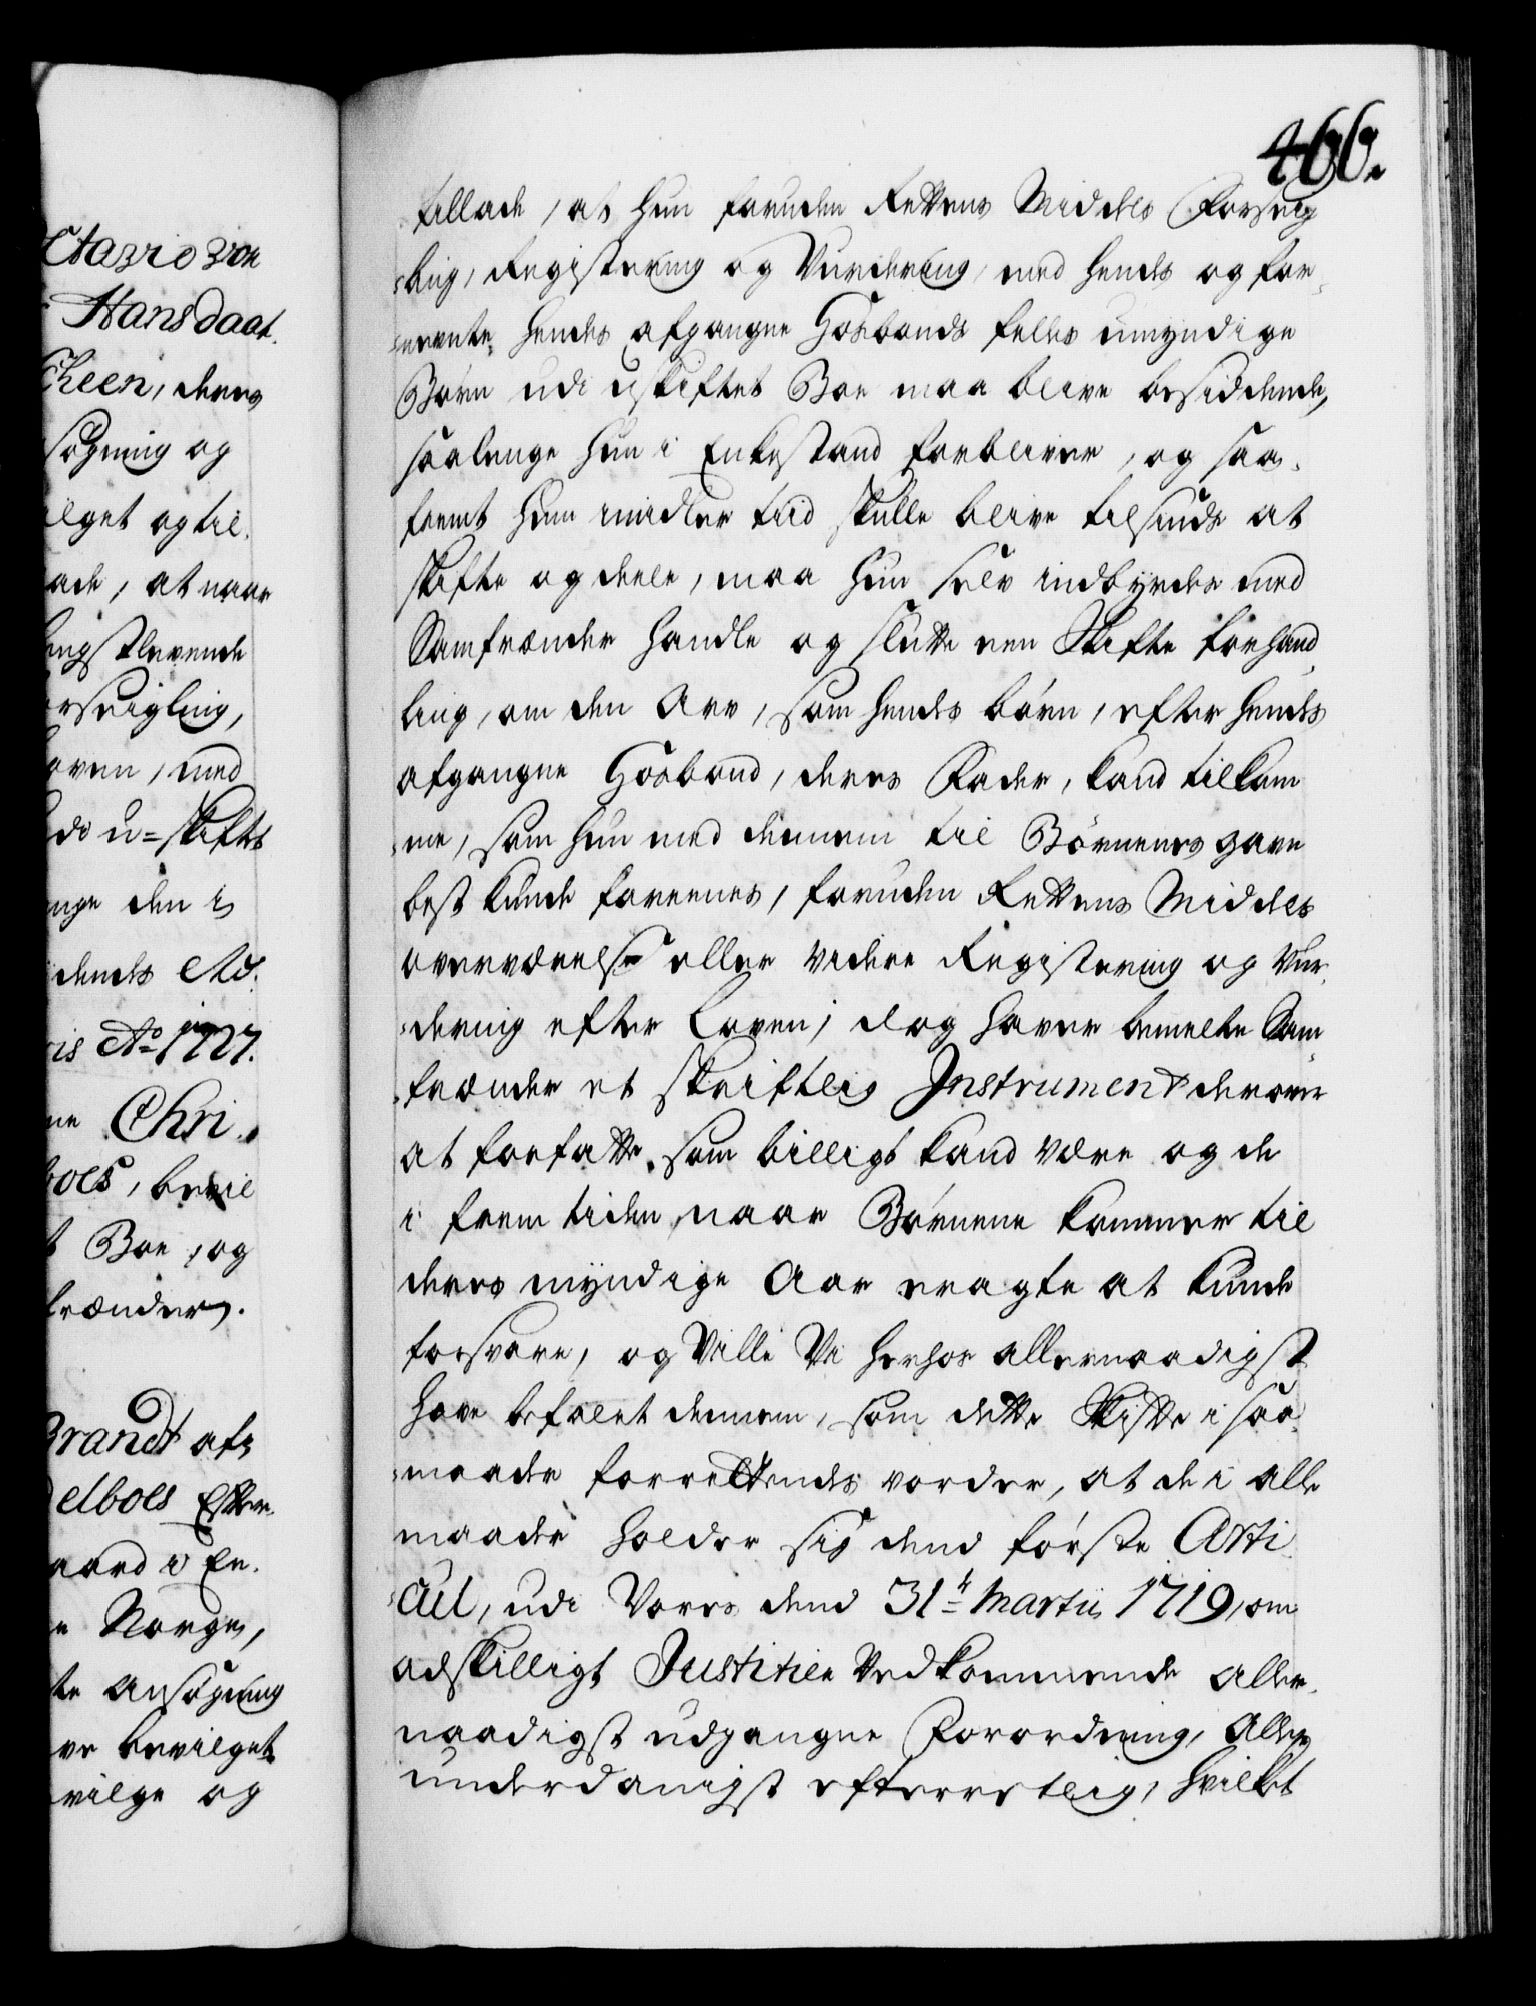 466.
tillade, at hun foruden Rettens Middels Forseig
-ling, Registering og Vurdering, med hendes og for-
-nevnte hendes afgangne Hosbonds felles umyndige
Børn udi uskiftet Boe maa blive besiddende,
saalenge hun i Enkestand forbliver, og saa-
fremt hun imidler tiid skulle blive tilsinds at
skifte og deele, maa hun selv indbyrdes med
Samfrænder handle og slutte een Skifte forhand-
ling, om den Arv, som hendes børn, efter hendes
afgangne Hosbond, deres Fader, kand tilkom
-me, som hun med dennem til Børnenes gavn
best kunde foreenes, foruden Rettens Middels
overværelse eller videre Registering og Vur-
-dering efter Loven; dog haver bemelte Sam
-frænder et skriftlig Instrument derover
at forfatte, som billigt kand være og de
i frem tiden, naar Børnene kommer til
deres myndige Aar eragte at kunde
forsvare, og Ville Vi herhos allernaadigst
have befalet dennem, som dette Skifte i saa-
-maade forrettendes vorder, at de i alle
maader holder sig dend første Arti-
-cul, udi Vores dend 31te Martii 1719, om
adskilligt Justitien Vedkommende aller-
naadigst udgangne Forordning, Aller-
underdanigst efterrettlig, hvilket
Octavio von
Hansdaat.
Cheen, deres
søgning og
ilget og til-
ade, at naar
ngstlevende
orseigling,
oven, med
di u-skiftet
nge den i
dends etc.
is Ao 1727.
ne Chri-
boes, bevil
t Boe, og
frænder.
Brandt af-
delboes Efter-
aard i En-
e Norge,
te ansøgning
ve bevilget
vilge og